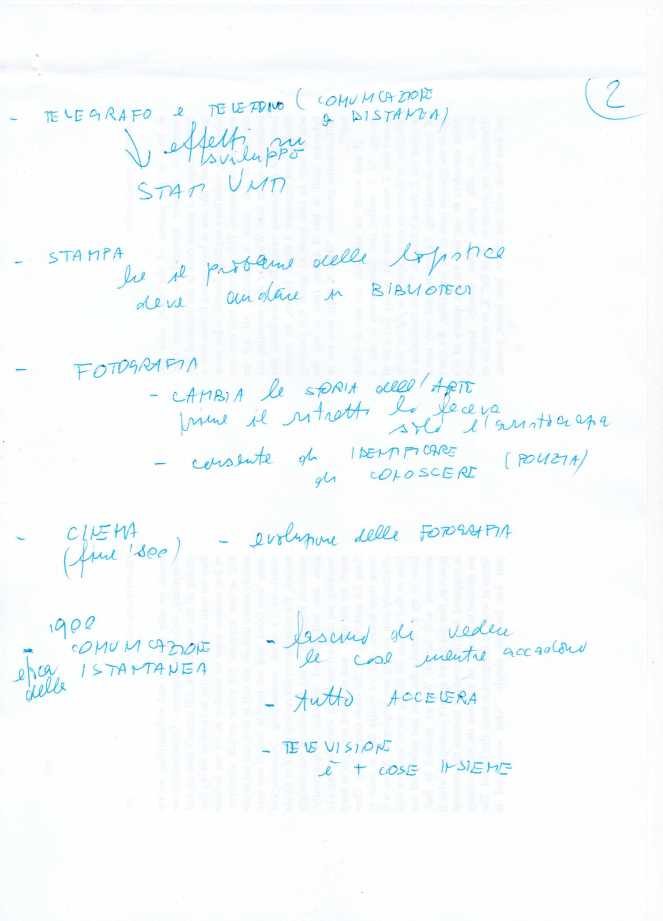 2
- TELEGRAFO e TELEFONO (COMUNICAZIONE
a DISTANZA)
effetti su
sviluppo
STATI UNITI
- STAMPA
ha il problema della logistica
deve andare in BIBLIOTECA
- FOTOGRAFIA
- CAMBIA la STORIA dell'ARTE
prima il ritratto lo faceva
solo l'aristocrazia
- consente di IDENTIFICARE
di CONOSCERE (POLIZIA)
- CINEMA
(fine '800) - evoluzione della FOTOGRAFIA
1900
- COMUNICAZIONE
epoca della ISTANTANEA
- fascino di vedere
le cose mentre accadono
- tutto ACCELERA
- TELEVISIONE
è + COSE INSIEME